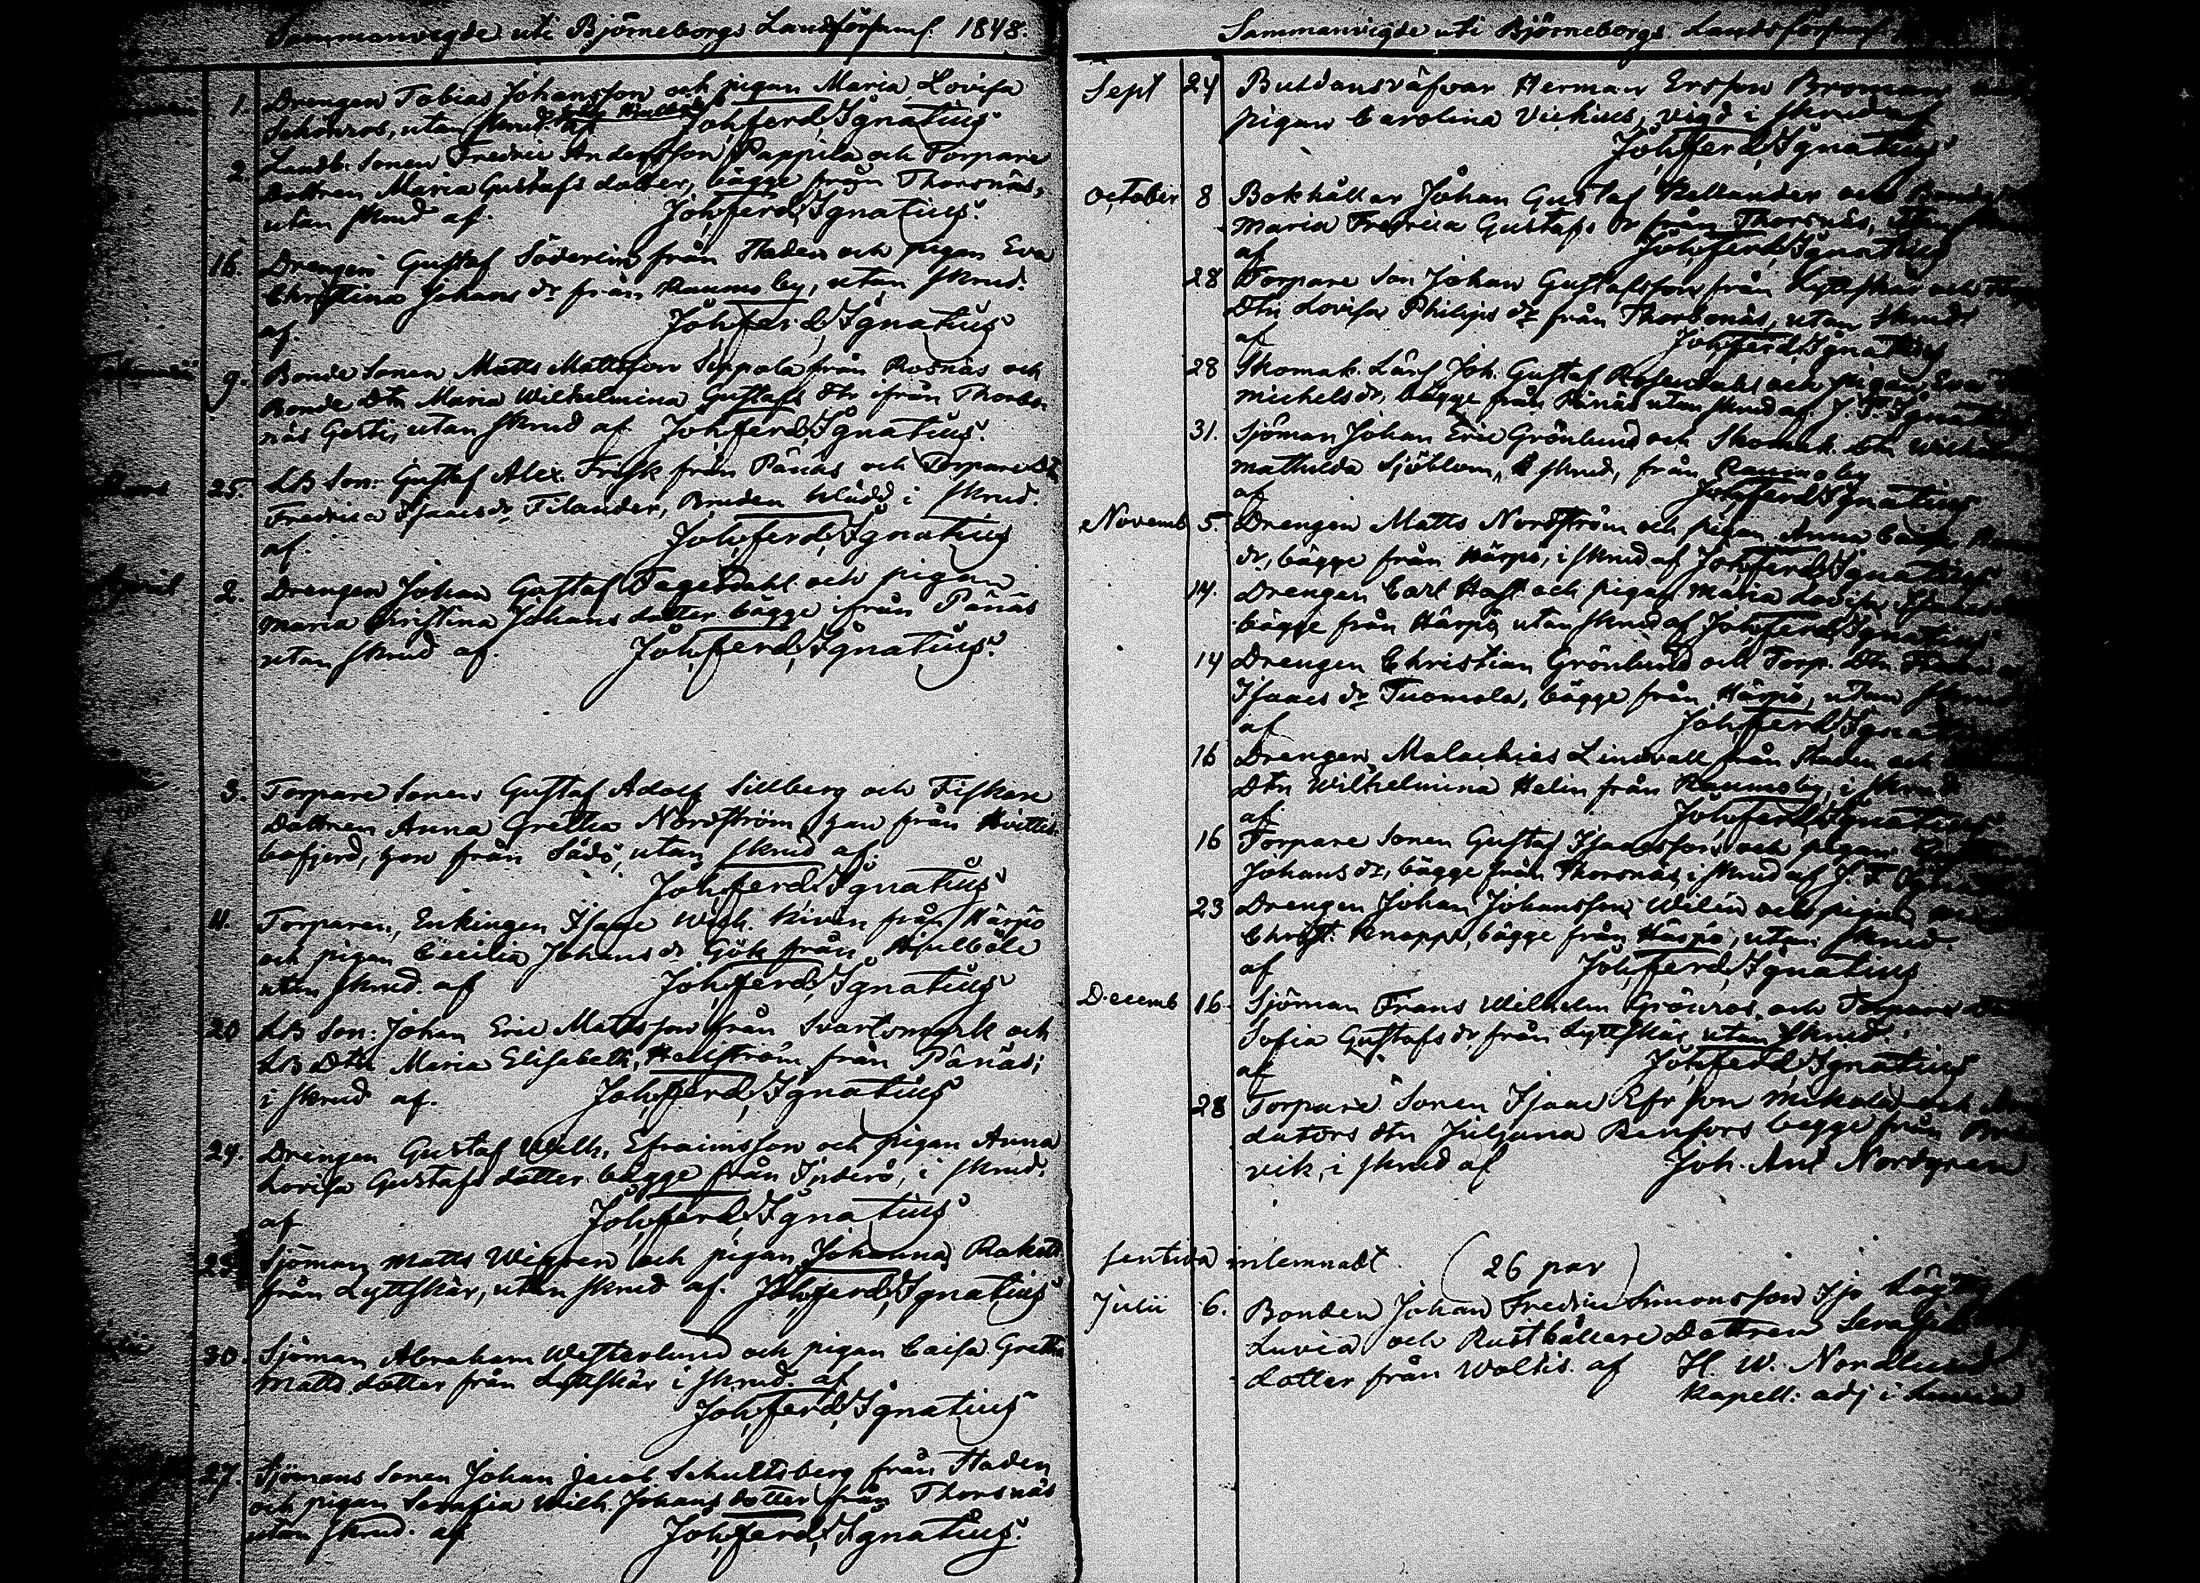 Sammanvigde uti Björneborgs Landsförsaml. 1848.
1. Drengen Tobias Johansson och pigan Maria Lovisa
Schönros, utan skrud af Joh, ferd, Ignatius
2. Landb. Sonen Fredric Andersson Pappila och Torpare
dottren Maria Gustafs dotter, bägge från Thorsnäs,
utan skrud af. Joh, ferd, Ignatius.
16. Drengen Gustaf Söderlin från Staden och pigan Eva
Christina Johans dr från Raumo by, utan skrud.
af. Joh, ferd, Ignatius
9. Bonde Sonen Matts Mattsson Seppola från Rosnäs och
Bonde Dtr Maria Wilhelmina Gustafs dtr ifrån Thorbo-
näs Gerti, utan skrud af Joh, ferd, Ignatius.
Mars 25. LB Son: Gustaf Alex. Frisk från Pänäs och Torpare Dr
Fredrica Isaacs dr Filander, Bruden klädd i skrud.
af. Joh, ferd, Ignatius
April 2. Drengen Johan Gustaf Fagerdahl och pigan
Maria Christina Johans dotter bägge ifrån Pänäs
utan skrud af. Joh, ferd, Ignatius.
3. Torpare Sonen Gustaf Adolf Sillberg och Fiskare
Dottren Anna Gretha Nordström, han från Hvittis
bofjerd, hon från Sådö, utan skrud af.
Joh, ferd, Ignatius
11. Torparen, Enkingen Isaac Wilh. Kivin från Härpö
och pigan Cecilia Johans dr Gök från Hjulböle
utan skrud. af Joh, ferd, Ignatius
20 LB Son: Johan Eric Mattsson från Svartsmark och
LB Dtr Maria Elisabeth, Hellström från Pänäs;
i skrud af. Joh, ferd, Ignatius
24. Drengen Gustaf Wilh, Efraimsson och pigan Anna
Lovisa Gustafs dotter bägge från Inderö, i skrud.
af Joh, ferd, Ignatius
Sjöman Matts Wigren och pigan Johanna Rakell
från Lyttskär, utan skrud af. Joh, ferd, Ignatius
30. Sjöman Abraham Westerlund och pigan Caisa Gretha
Matts dotter från Lyttskär i skrud. af
Joh, ferd, Ignatius
27. Sjömans Sonen Johan Jacob Schultsberg från Staden
och pigan Serafia Wilh. Johans dotter från Thorsnäs
utan skrud. af. Joh, ferd, Ignatius.
Sammanvigde uti Björneborgs Landsförsaml
Sept 24 Buldansväfvar Herman Ersson Broman
pigan Carolina Vickius, vigd i skrud af
Joh, ferd, Ignatius
October 8 Bokhållar Johan Gustaf Kellander och Bonde
Maria Fredrica Gustafs dr från Thorsnäs, utan
af Joh, ferd, Ignatius
28 Torpare Son Johan Gustafsson från Lyttskär och
Dtr Lovisa Philips dr från Thorbonäs, utan skrud.
af Joh, ferd, Ignatius
28 Skomak. Lärl Joh. Gustaf Rosendahl och pigan Eva
Michels dr, bägge från Pänäs utan skrud af J. F. Ignatius
31. Sjöman Johan Eric Grönlund och Skomak. Dtr Wilhelmina
Mathilda Sjöblom, i skrud, från Raumo by
af Joh, ferd, Ignatius
Novemb 5. Drengen Matts Nordström och pigan Anna Caisa
dr, bägge från Härpö, i skrud af Joh, ferd, Ignatius
14. Drengen Carl Haft och pigan Maria Lovisa
bägge från Härpö, utan skrud af Joh, ferd, Ignatius
14 Drengen Christian Grönlund och Torp. Dtr
Isaacs dr Tuomola, bägge från Härpö, utan skrud
af Joh, ferd, Ignatius
16 Drengen Malachias Lindvall från Staden och
Dtr Wilhelmina Helin från Raumo by, i skrud
af Joh, ferd, Ignatius.
16 Torpare Sonen Gustaf Isaacsson och pigan
Johans dr, bägge från Thorsnäs i skrud af J. F. Ignatius
23 Drengen Johan Johansson Welin och pigan
Christ. Knappe, bägge från Härpö, utan skrud.
af Joh, ferd, Ignatius
Decemb 16. Sjöman Frans Wilhelm Grönros och Torpare
Sofia Gustafs dr från Lyttskär utan skrud.
af Joh, ferd, Ignatius
28 Torpare Sonen Isaac Efr son Mikola och
dators dtr Juljana Renfors begge från
vik, i skrud af Joh. Ant Nordgren
sentida inlemnadt (26 par)
Julii 6. Bonden Johan Fredric Simonsson Iso
Luvia och Rusthållare Dottren Serafia
dotter från Woltis. af H. W. Nordlund
Kapell: adj i Luvia